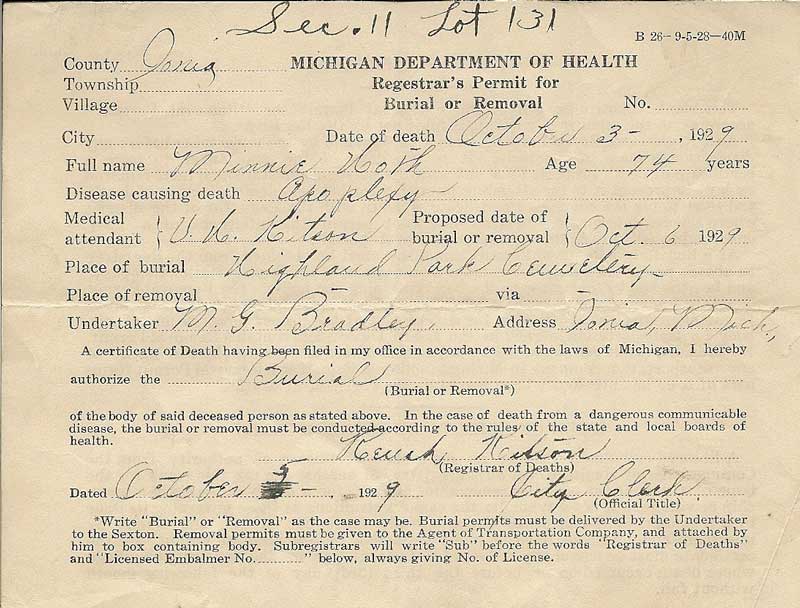 Sec. 11 Lot 131
B 26-9-5-28-40M
County Ionia MICHIGAN DEPARTMENT OF HEALTH
Township Regestrar's Permit for
Village Burial or Removal No.
City Date of death October 3- , 1929
Full name Minnie Age 74 years
Disease causing death Apoplexy
Medical attendant Kitson Proposed date of burial or removal Oct. 6 1929
Place of burial Highland Park Cemetery
Place of removal - via -
Undertaker M. G. Bradley. Address Ionia, Mich.,
A certificate of Death having been filed in my office in accordance with the laws of Michigan, I hereby
authorize the Burial
(Burial or Removal*)
of the body of said deceased person as stated above. In the case of death from a dangerous communicable
disease, the burial or removal must be conducted according to the rules of the state and local boards of
health.
Kitson
(Registrar of Deaths)
Dated October 5 - 1929 City Clerk
(Official Title)
*Write "Burial" or "Removal" as the case may be. Burial permits must be delivered by the Undertaker
to the Sexton. Removal permits must be given to the Agent of Transportation Company, and attached by
him to box containing body. Subregistrars will write "Sub" before the words "Registrar of Deaths"
and "Licensed Embalmer No. " below, always giving No. of License.